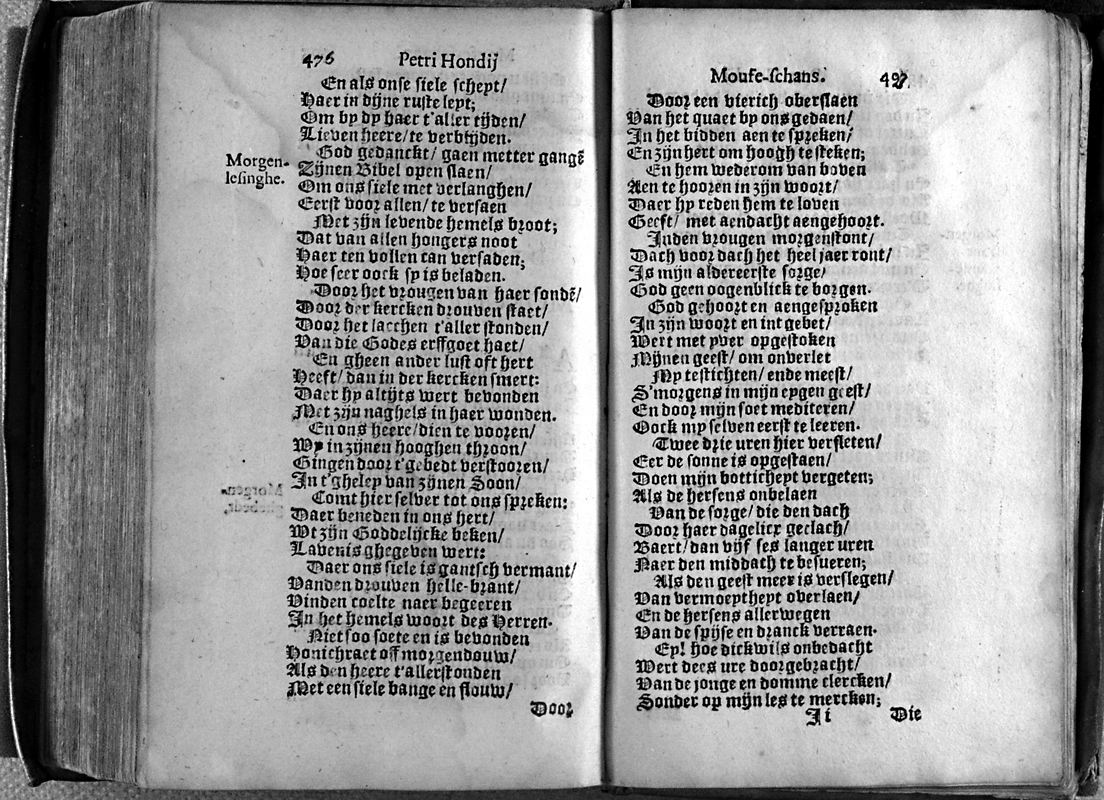 476 Petri Hondij
En als onse siele schept/
Haer in dijne ruste lept;
Om by dy haer t'aller tijden/
Lieven heere/te verblijden.
God gedanckt/ gaen metter gangẽ
Morgen-
lesinghe.
Zijnen Bibel open slaen/
Om ons siele met verlanghen/
Eerst voor allen/te versaen
Met zijn levende hemels broot;
Dat van allen hongers noot
Haer ten vollen can versaden;
Hoe seer oock sy is beladen.
Door het vrougen van haer sondẽ/
Door der kercken drouven staet/
Door het lacchen t'aller stonden/
Van die Godes erffgoet haet/
En gheen ander lust oft hert
Heeft/ dan in der kercken smert:
Daer hy altijts wert bevonden
Met zijn naghels in haer wonden.
En ons heere/dien te vooren/
Wy in zijnen hooghen throon/
Gingen door t'gebedt verstooren/
In t'gheley van zijnen Soon/
Comt hier selver tot ons spreken:
Daer beneden in ons hert/
Wt zijn Goddelijcke beken/
Lavenis ghegeven wert:
Daer ons siele is gantsch vermant/
Vanden drouven helle-brant/
Vinden coelte naer begeeren
In het hemels woort des Herren.
Niet soo soete en is bevonden
Honichraet off morgendouw/
Als den heere t'allerstonden
Met een siele bange en flouw/
Door
Moufe-schans. 497
Door een vierich oberslaen
Van het quaet by ons gedaen/
In het bidden aen te spreken/
En zijn hert om hoogh te steken;
En hem wederom van boven
Aen te hooren in zijn woort/
Daer hy reden hem te loven
Geeft/ met aendacht aengehoort.
Inden vrougen morgenstont/
Dach voor dach het heel jaer rout/
Is mijn aldereerste sorge/
God geen oogenblick te borgen.
God gehoort en aengesproken
In zijn woort en int gebet/
Wert met yver opgestoken
Mijnen geest/ om onverlet
My te stichten/ ende meest/
S'morgens in mijn eygen geest/
En door mijn soet mediteren/
Oock my selven eerst te leeren.
Twee drie uren hier versleten/
Eer de sonne is opgestaen/
Doen mijn botticheyt vergeten;
Als de hersens onbelaen
Van de sorge/ die den dach
Door haer dagelicx geclach/
Baert/dan vijf ses langer uren
Naer den middach te besueren;
Als den geest meer is verslegen/
Van vermoeytheyt overlaen/
En de hersens allerwegen
Van de spijse en dranck verraen.
Ey! hoe dickwils onbedacht
Wert dees ure doorgebracht/
Van de jonge en domme clercken/
Sonder op mijn les te mercken;
Ii Die